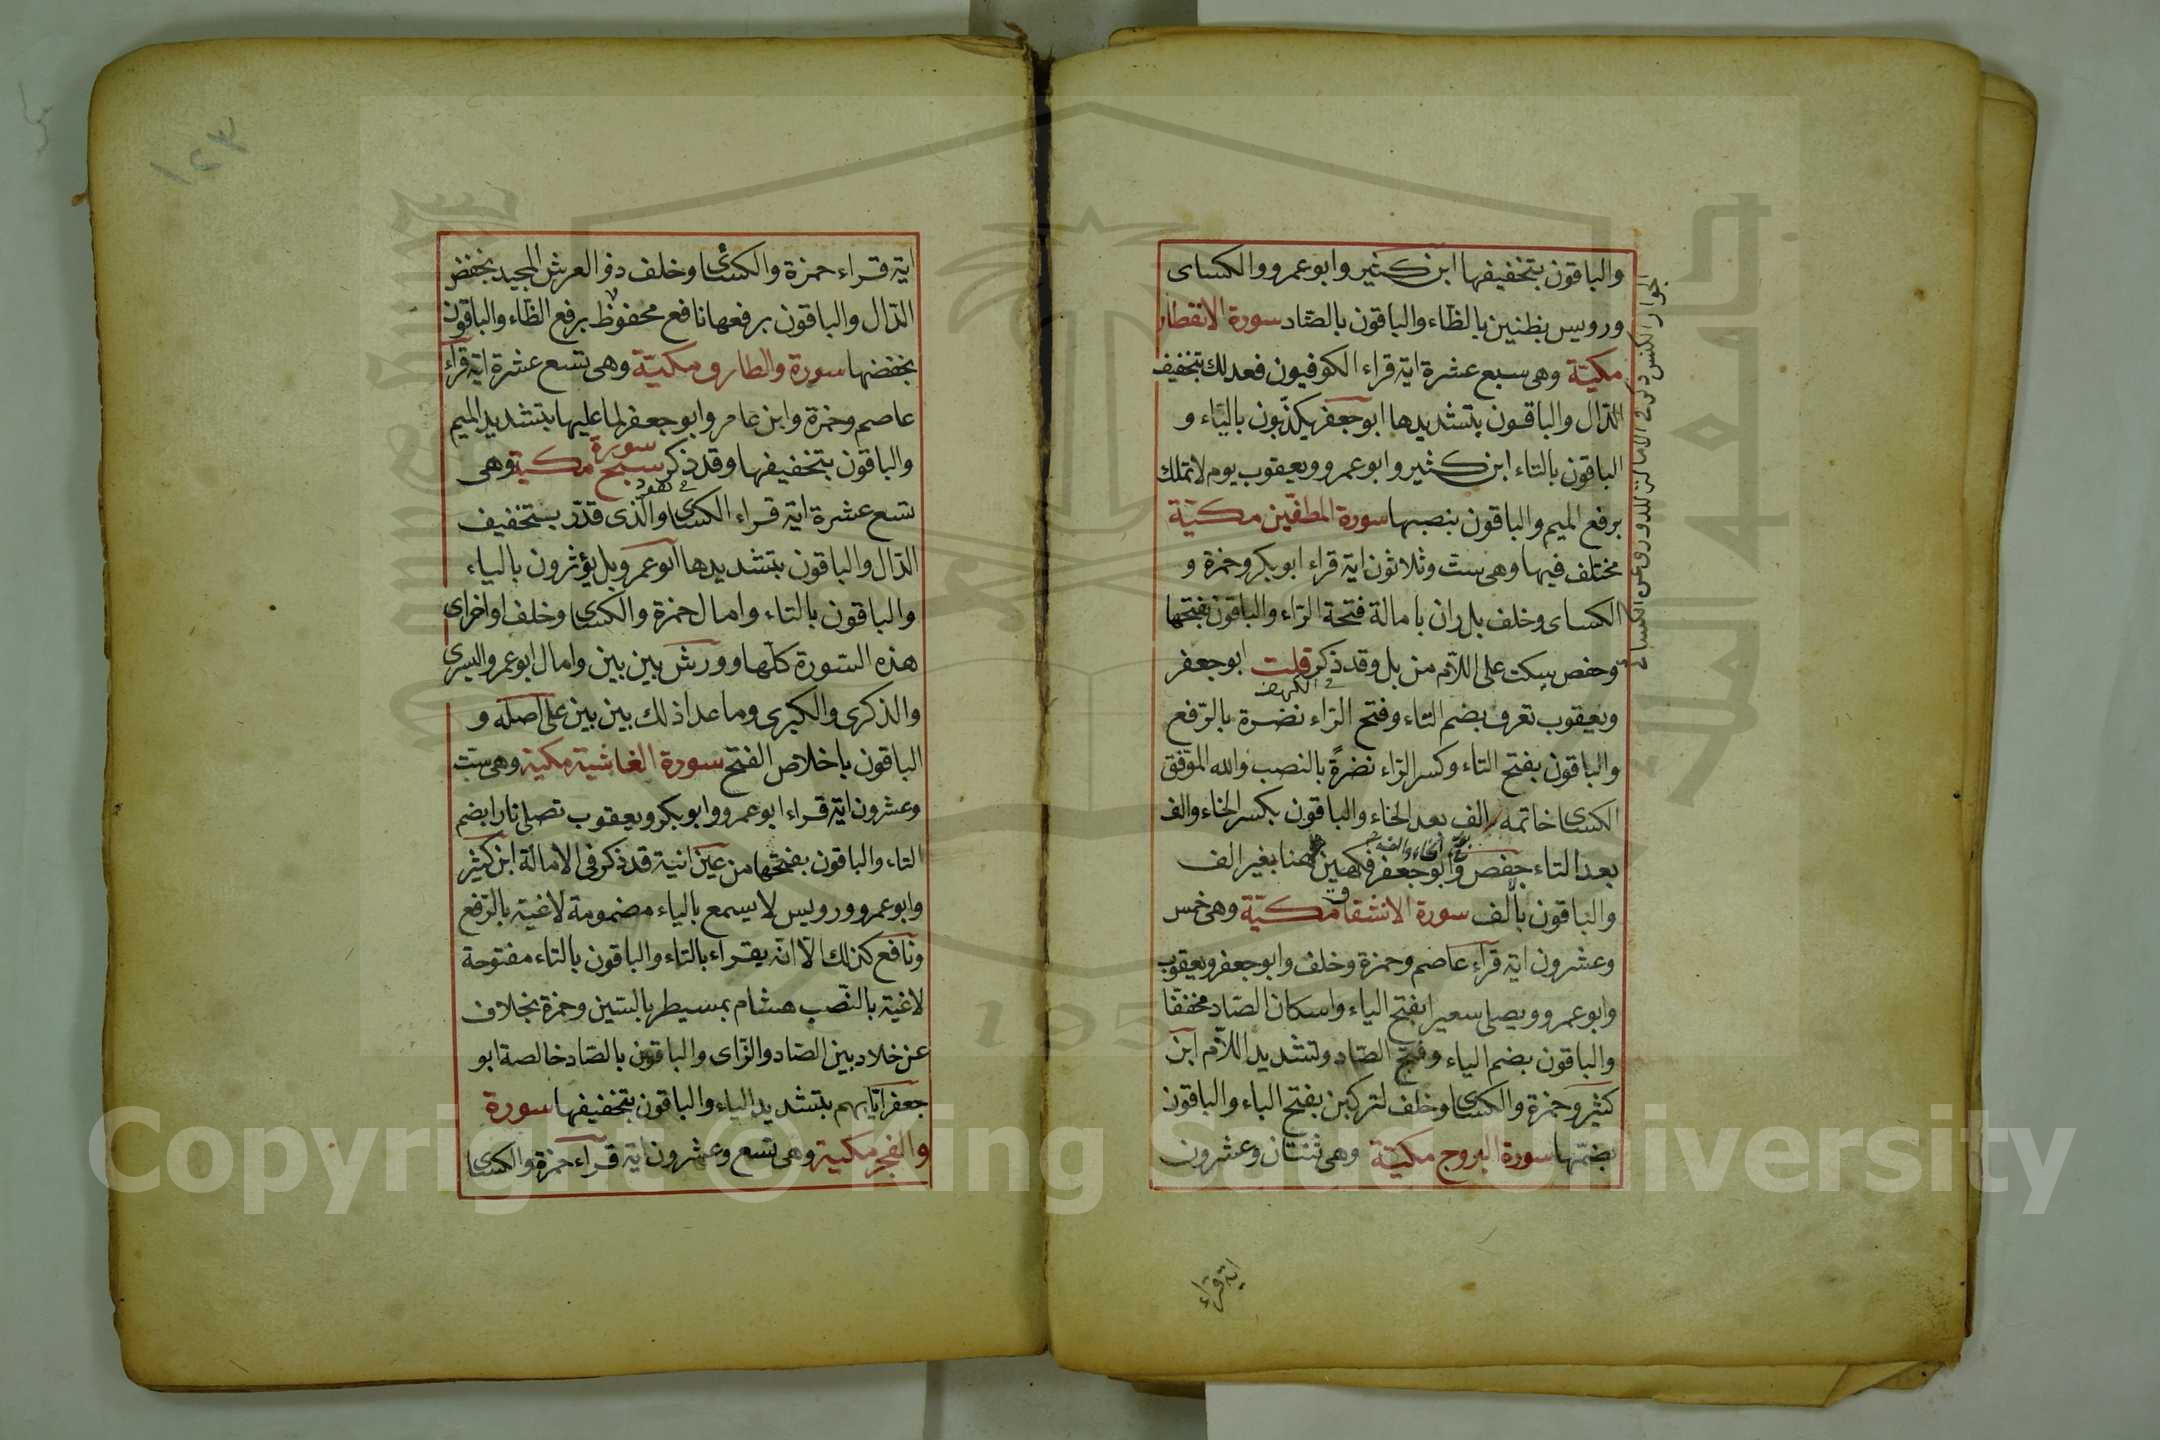 والباقون بتخفيفها ابن كثير وابو عمرو والكسای
ورويس بظنين بالظّاء والباقون بالضّاد سورة الانفطار
مكيّة وهى سبع عشرة اية قراء الكوفيون فعدلك بتخفيف
الدّال والباقون بتشديدها ابو جعفر يكذّبون بالياء و
الباقون بالتاء ابن كثير وابو عمرو ويعقوب يوم لا تملك
برفع الميم والباقون بنصبها سورة المطفّين مكيّة
مختلف فيها وهى ست وثلاثون اية قراء ابو بكر وحمزة و
الكسای وخلف بل ران بامالة فتحة الرّاء والباقون بفتحها
وحفص يسكت على اللاّم من بل وقد ذكر قلت ابو جعفر
فى الكهف
ويعقوب تعرف بضم التاء وفتح الرّاء نضرة بالرّفع
والباقون بفتح التاء وكسر الرّاء نضرةً بالنصب والله الموفق
الكسای خاتمه الف بعد الخاء والباقون بكسر الخاء والف
بعد التاء حفص وابو جعفر فكهين ههنا بغير الف
والباقون بالف سورة الانشقاق مكيّة وهى خمس
وعشرون اية قراء عاصم وحمزة وخلف وابو جعفر ويعقوب
وابو عمرو ويصلى سعيرا بفتح الياء واسكان الصّاد مخففا
والباقون بضم الياء وفتح الصّاد وتشديد اللاّم ابن
كثير وحمزة والكسای وخلف لتركبن بفتح الباء والباقون
بضمّها سورة البروج مكيّة وهى ثنتان وعشرون
اية قراء
الجوار الكنس ذكر فى الامالة للدورى عن الكسائى
١٤٣
اية قراء حمزة والكسائى وخلف ذو العرش المجيد بخفض
الدّال والباقون برفعها نافع محفوظ برفع الظّاء والباقون
بخفضها سورة والطارق مكيّة وهى تسع عشرة اية قراء
عاصم وحمزة وابن عامر وابو جعفر لما عليها بتشديد الميم
والباقون بتخفيفها وقد ذكر سورة سبح مكية وهى
فى هود
تسع عشرة اية قراء الكسای والذى قدّر بتخفيف
الدّال والباقون بتشديدها ابو عمرو بل يؤثرون بالياء
والباقون بالتاء وامال حمزة والكسای وخلف اواخر ای
هذه السّورة كلّها وورش بين بين وامال ابو عمرو اليسرى
والذكرى والكبرى وما عدا ذلك بين بين على اصله و
الباقون باخلاص الفتح سورة الغاشية مكية وهى ست
وعشرون اية قراء ابو عمرو وابو بكر ويعقوب تصلى نارا بضم
التاء والباقون بفتحها من عين انية قد ذكر فى الامالة ابن كثير
وابو عمرو ورويس لا يسمع بالياء مضمومة لاغية بالرّفع
ونافع كذلك الاّ انّه يقراء بالتاء والباقون بالتاء مفتوحة
لاغية بالنّصب هشام بمسيطر بالسّين وحمزة بخلاف
عن خلاد بين الصّاد والزّاى والباقون بالصّاد خالصة ابو
جعفر ايّابهم بتشديد الياء والباقون بتخفيفها سورة
والفجر مكية وهى تسع وعشرون اية قراء حمزة والكسای
Copyright © King Saud University
1957